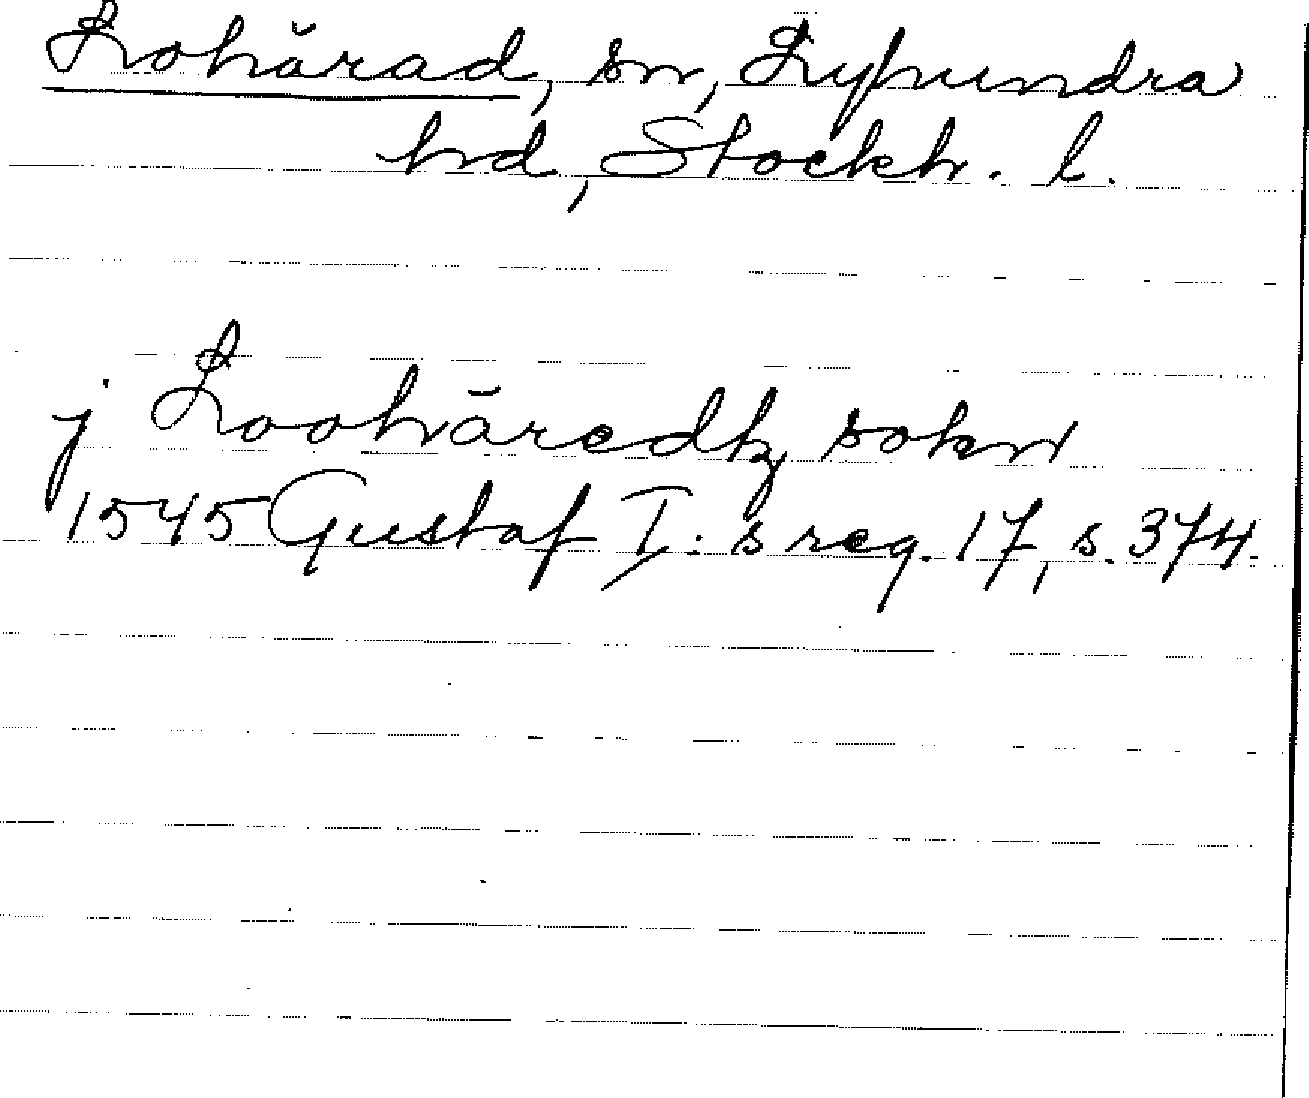 Lohärad, sn, Lyhundra
hd, Stockh. l.
j Loohäredtz sokn
1545 Gustaf I:s reg. 17, s. 374.